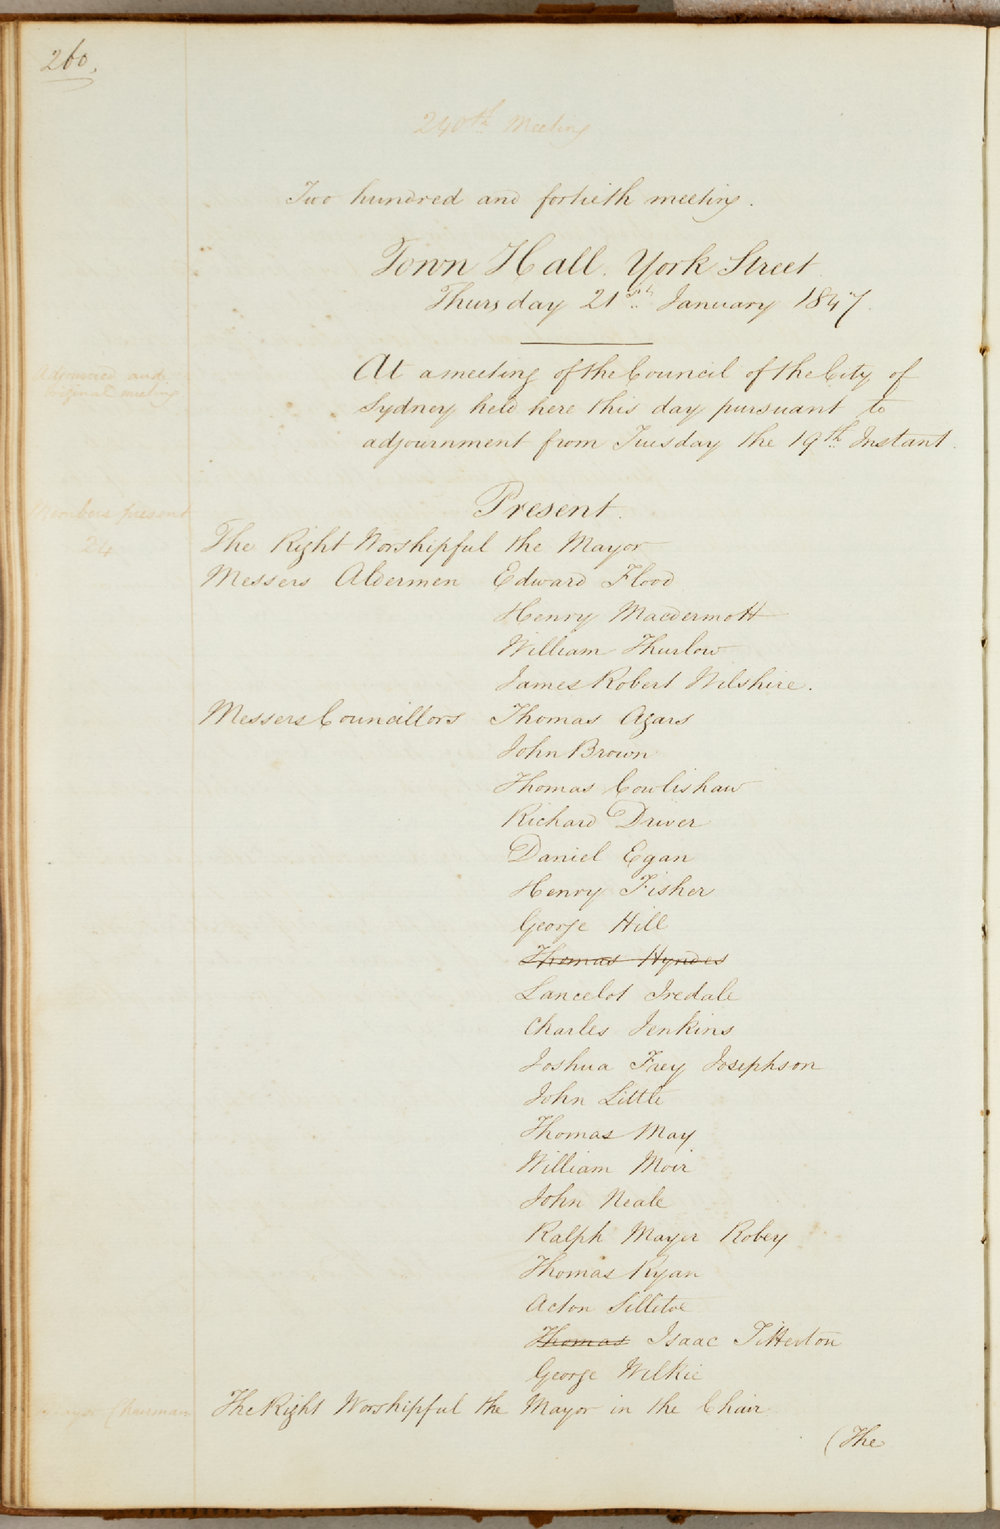 260.
240th Meeting
Two hundred and fortieth meeting.
Town Hall. York Street
Thursday 21st January 1847.
Adjourned and
original meeting
At a meeting of the Council of the City of
Sydney held here this day pursuant to
adjournment from Tuesday the 19th Instant.
Present.
Members present
24
The Right Worshipful the Mayor
Messers Aldermen Edward Flood
Henry Macdermott
William Thurlow
James Robert Wilshire.
Messers Councillors Thomas Agars
John Brown
Thomas Cowlishaw
Richard Driver
Daniel Egan
Henry Fisher
George Hill
Thomas Hyndes
Lancelot Iredale
Charles Jenkins
Joshua Frey Josephson
John Little
Thomas May
William Moir
John Neale
Ralph Mayer Robey
Thomas Ryan
Acton Sillitoe
Thomas Isaac Titterton
George Wilkie
Mayor Chairman
The Right Worshipful the Mayor in the Chair
(The